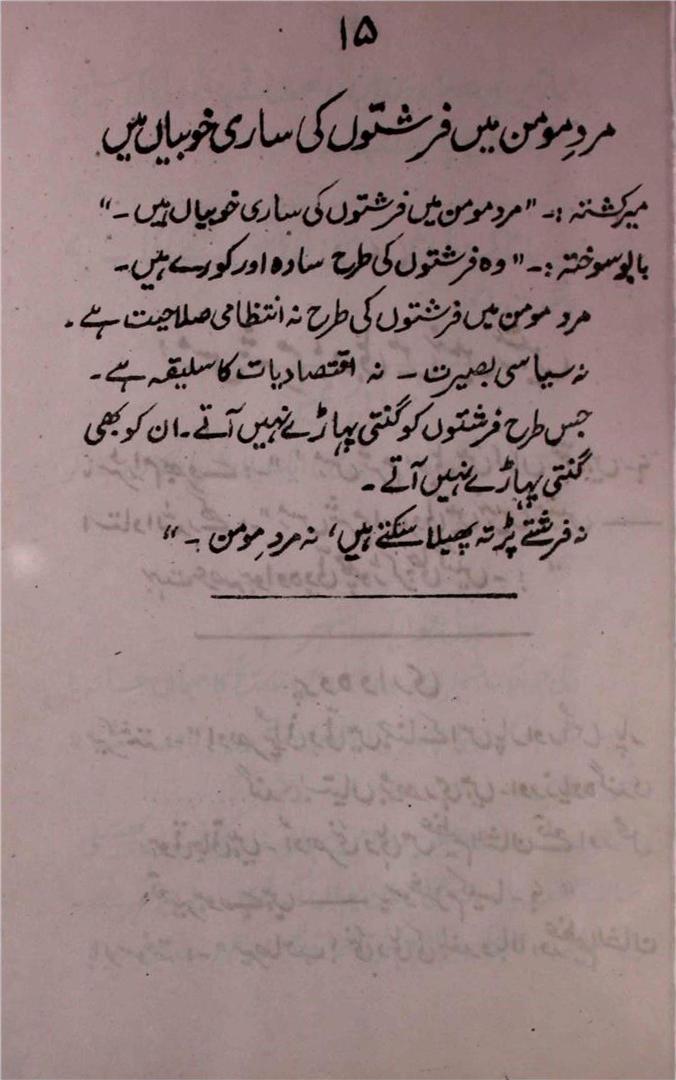 ۱۵
مردِ مومن میں فرشتوں کی ساری خوبیاں ہیں
میر کشتہ :۔ "مرد مومن میں فرشتوں کی ساری خوبیاں ہیں ۔"
بالو سوختہ :۔ "وہ فرشتوں کی طرح سادہ اور کورے ہیں۔
مرد مومن میں فرشتوں کی طرح نہ انتظامی صلاحیت ہے ۔
نہ سیاسی بصیرت ۔ نہ اقتصادیات کا سلیقہ ہے ۔
جس طرح فرشتوں کو گنتی پہاڑے نہیں آتے ۔ ان کو بھی
گنتی پہاڑے نہیں آتے ۔
نہ فرشتے پڑتہ پھیلا سکتے ہیں، نہ مردِ مومن ۔"